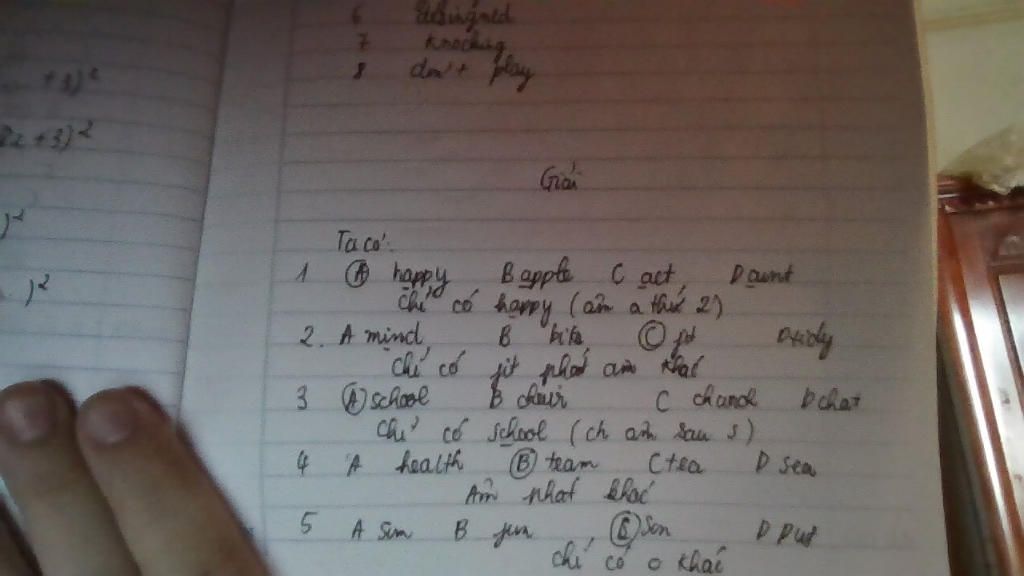 +3)²
2x+3)²
)²
)²
6 designed
7 knocking
8 don't play
Giải
Ta có:
1 A happy B apple C act D aunt
Chỉ có happy (âm a thứ 2)
2. A mind B bike C fit D
Chỉ có fit phát âm khác
3 A school B chair C D chat
Chỉ có school (ch âm sau s)
4 A health B team C tea D sea
Âm phát khác
5 A Sun B fun C Son D Put
Chỉ có o khác